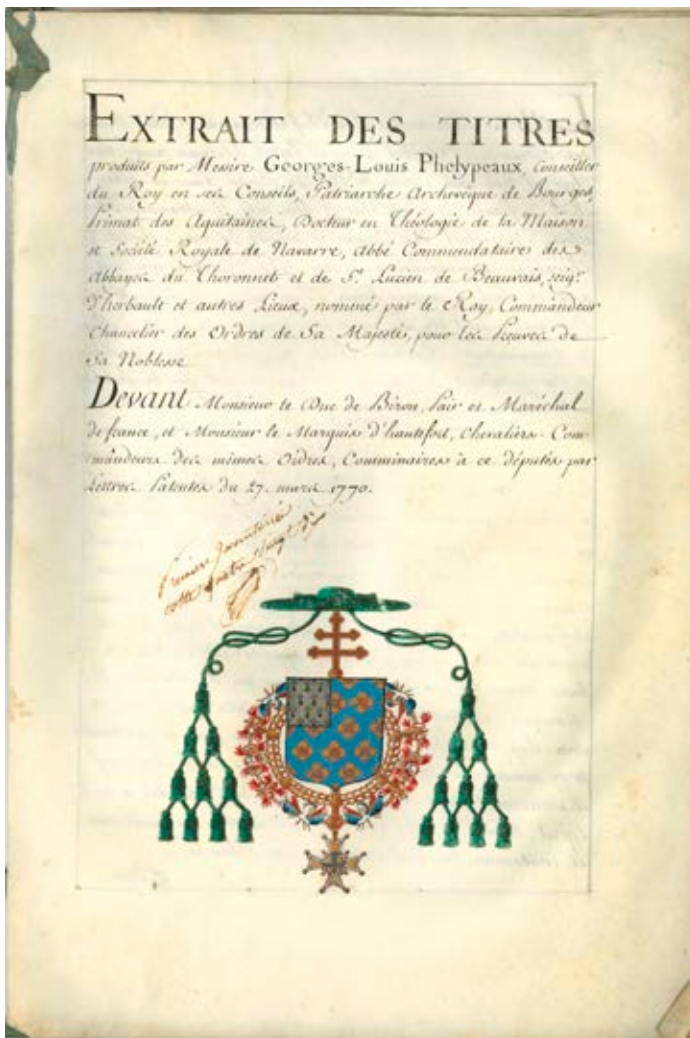 EXTRAIT DES TITRES
produits par Messire Georges-Louis Phelypeaux, Conseiller
du Roy en ses Conseils, Patriarche Archevêque de Bourges,
Primat des Aquitaines, Docteur en Théologie de la Maison
et Société Royale de Navarre, Abbé Commendataire des
Abbayes du Thoronnet et de St. Lucien de Beauvais, seigr.
d'herbault et autres Lieux, nommé par le Roy, Commandeur
Chancelier des Ordres de Sa Majesté, pour les Preuves de
Sa Noblesse
Devant Monsieur le Duc de Biron, Pair et Maréchal
de france, et Monsieur le Marquis d'hautefort, Chevaliers-Com-
mandeurs des mêmes Ordres, Commissaires à ce députés par
Lettres Patentes du 27. mars 1770.
Premiere
cotte